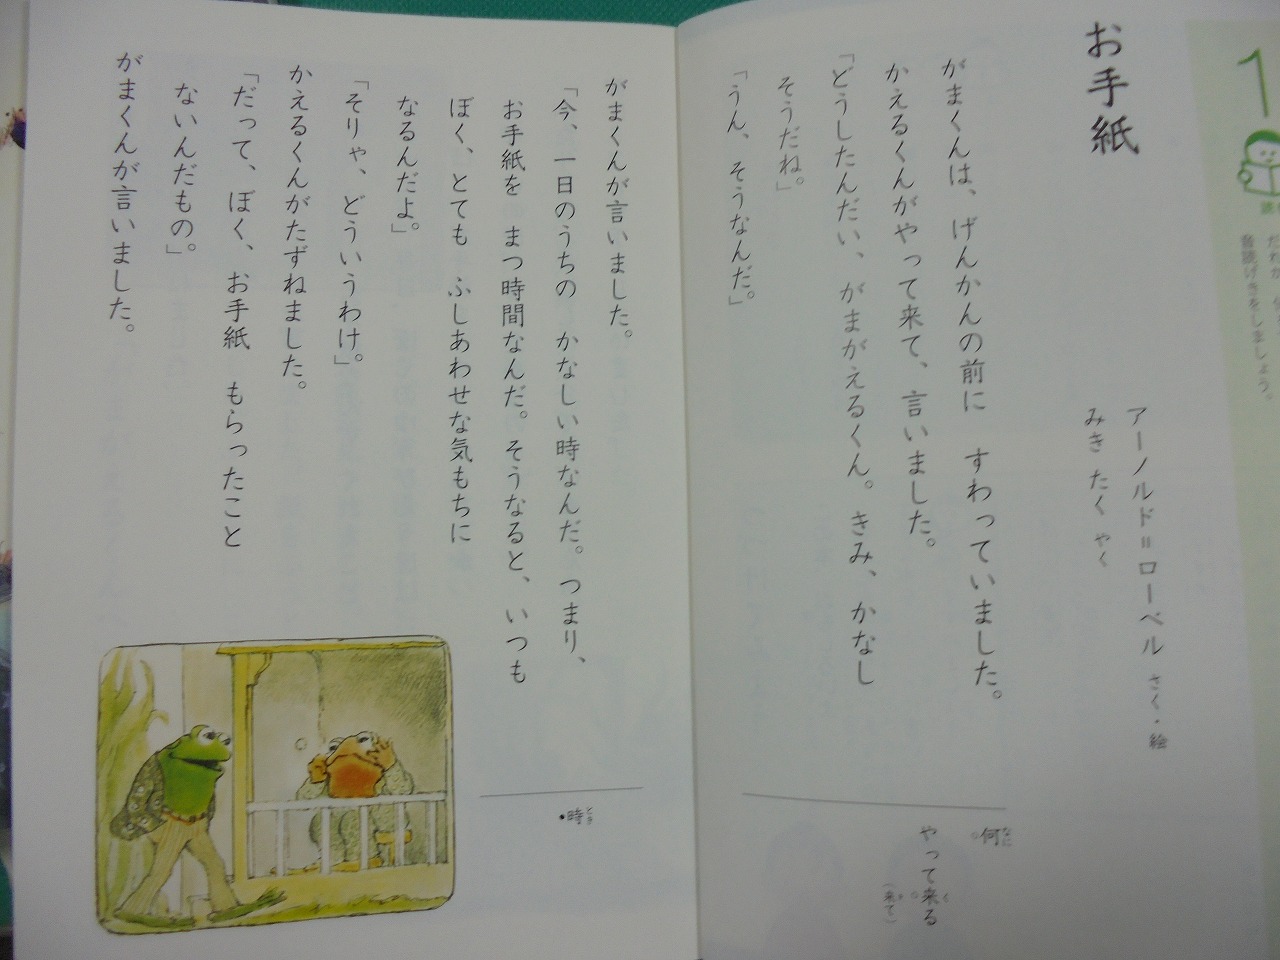 1
音読げきをしましょう。
お手紙
アーノルド＝ローベル さく・絵
みき たく やく
がまくんは、げんかんの前に すわっていました。
かえるくんがやって来て、言いました。
「どうしたんだい、がまがえるくん。きみ、かなし
そうだね。」
「うん、そうなんだ。」
何
なに
やって来る
く
（来て）
き
がまくんが言いました。
「今、一日のうちの かなしい時なんだ。つまり、
お手紙を まつ時間なんだ。そうなると、いつも
ぼく、とても ふしあわせな気もちに
なるんだよ。」
「そりゃ、どういうわけ。」
かえるくんがたずねました。
「だって、ぼく、お手紙 もらったこと
ないんだもの。」
がまくんが言いました。
・時
とき